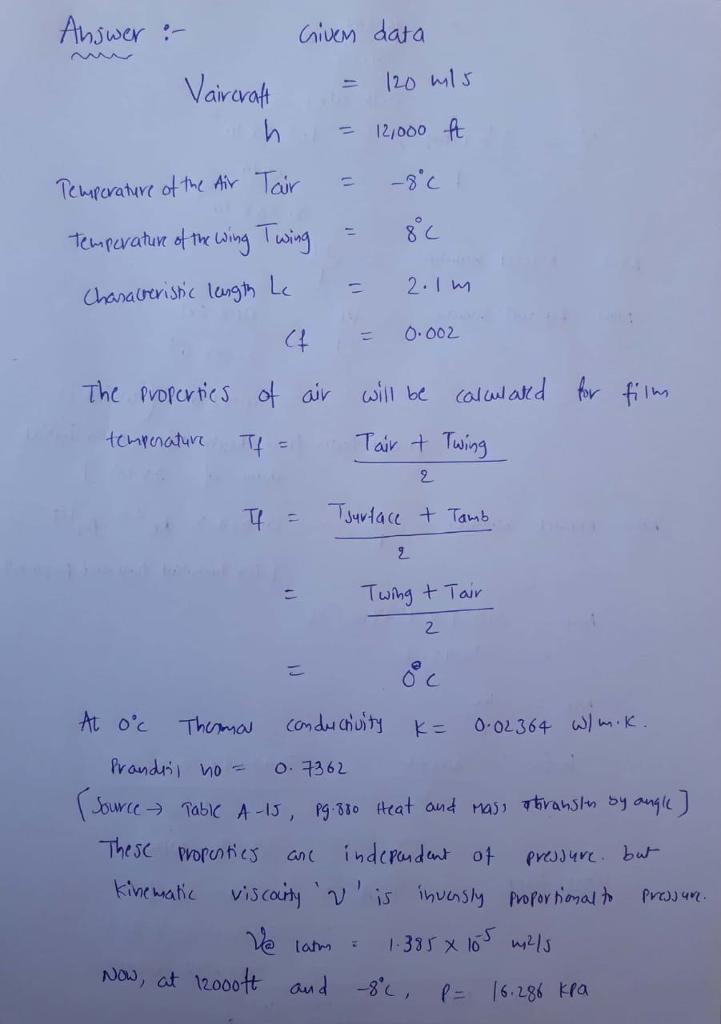 Answer :- Given data
Vaircraft = 120 m/s
h = 12,000 ft
Temperature of the Air Tair = -8°C
temperature of the wing Twing = 8°C
Characteristic length Lc = 2.1 m
Cf = 0.002
The properties of air will be calculated for film
temperature Tf = Tair + Twing
2
Tf = Tsurface + Tamb
2
= Twing + Tair
2
= 0°C
At 0°C Thermal conductivity K = 0.02364 W/m.K.
Prandtl no = 0.7362
[Source → Table A-15, pg.880 Heat and Mass by angle]
These properties are independent of pressure. but
Kinematic viscosity 'ν' is inversly proportional to pressure.
ν@ 1atm = 1.385 x 10-5 m2/s
Now, at 12000ft and -8°C, P = 16.286 kPa